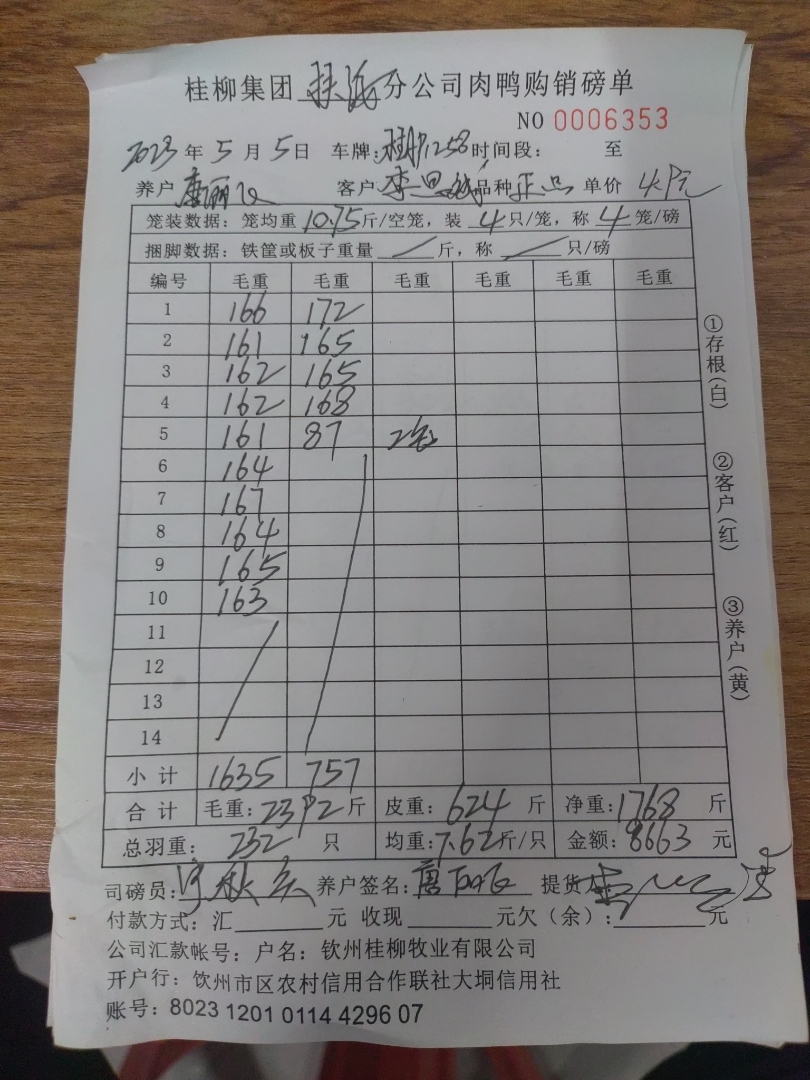 桂柳集团 扶海 分公司肉鸭购销磅单
NO 0006353
2023 年 5 月 5 日 车牌: 桂 1258 时间段: 至
养户 唐丽 客户 李 品种 正品 单价 4.9元
笼装数据: 笼均重 10.75 斤/空笼, 装 4 只/笼, 称 4 笼/磅
捆脚数据: 铁筐或板子重量 / 斤, 称 / 只/磅
编号 毛重 毛重 毛重 毛重 毛重 毛重
1 166 172
2 161 165
3 162 165
4 162 168
5 161 87 2笼
6 164
7 167
8 164
9 165
10 163
11
12
13
14
小计 1635 757
合计 毛重: 2392 斤 皮重: 624 斤 净重: 1768 斤
总羽重: 232 只 均重: 7.62 斤/只 金额: 8663 元
司磅员: 养户签名: 唐 提货
付款方式: 汇 元 收现 元欠(余): 元
公司汇款帐号: 户名: 钦州桂柳牧业有限公司
开户行: 饮州市区农村信用合作联社大垌信用社
账号: 8023 1201 0114 4296 07
①存根(白)
②客户(红)
③养户(黄)